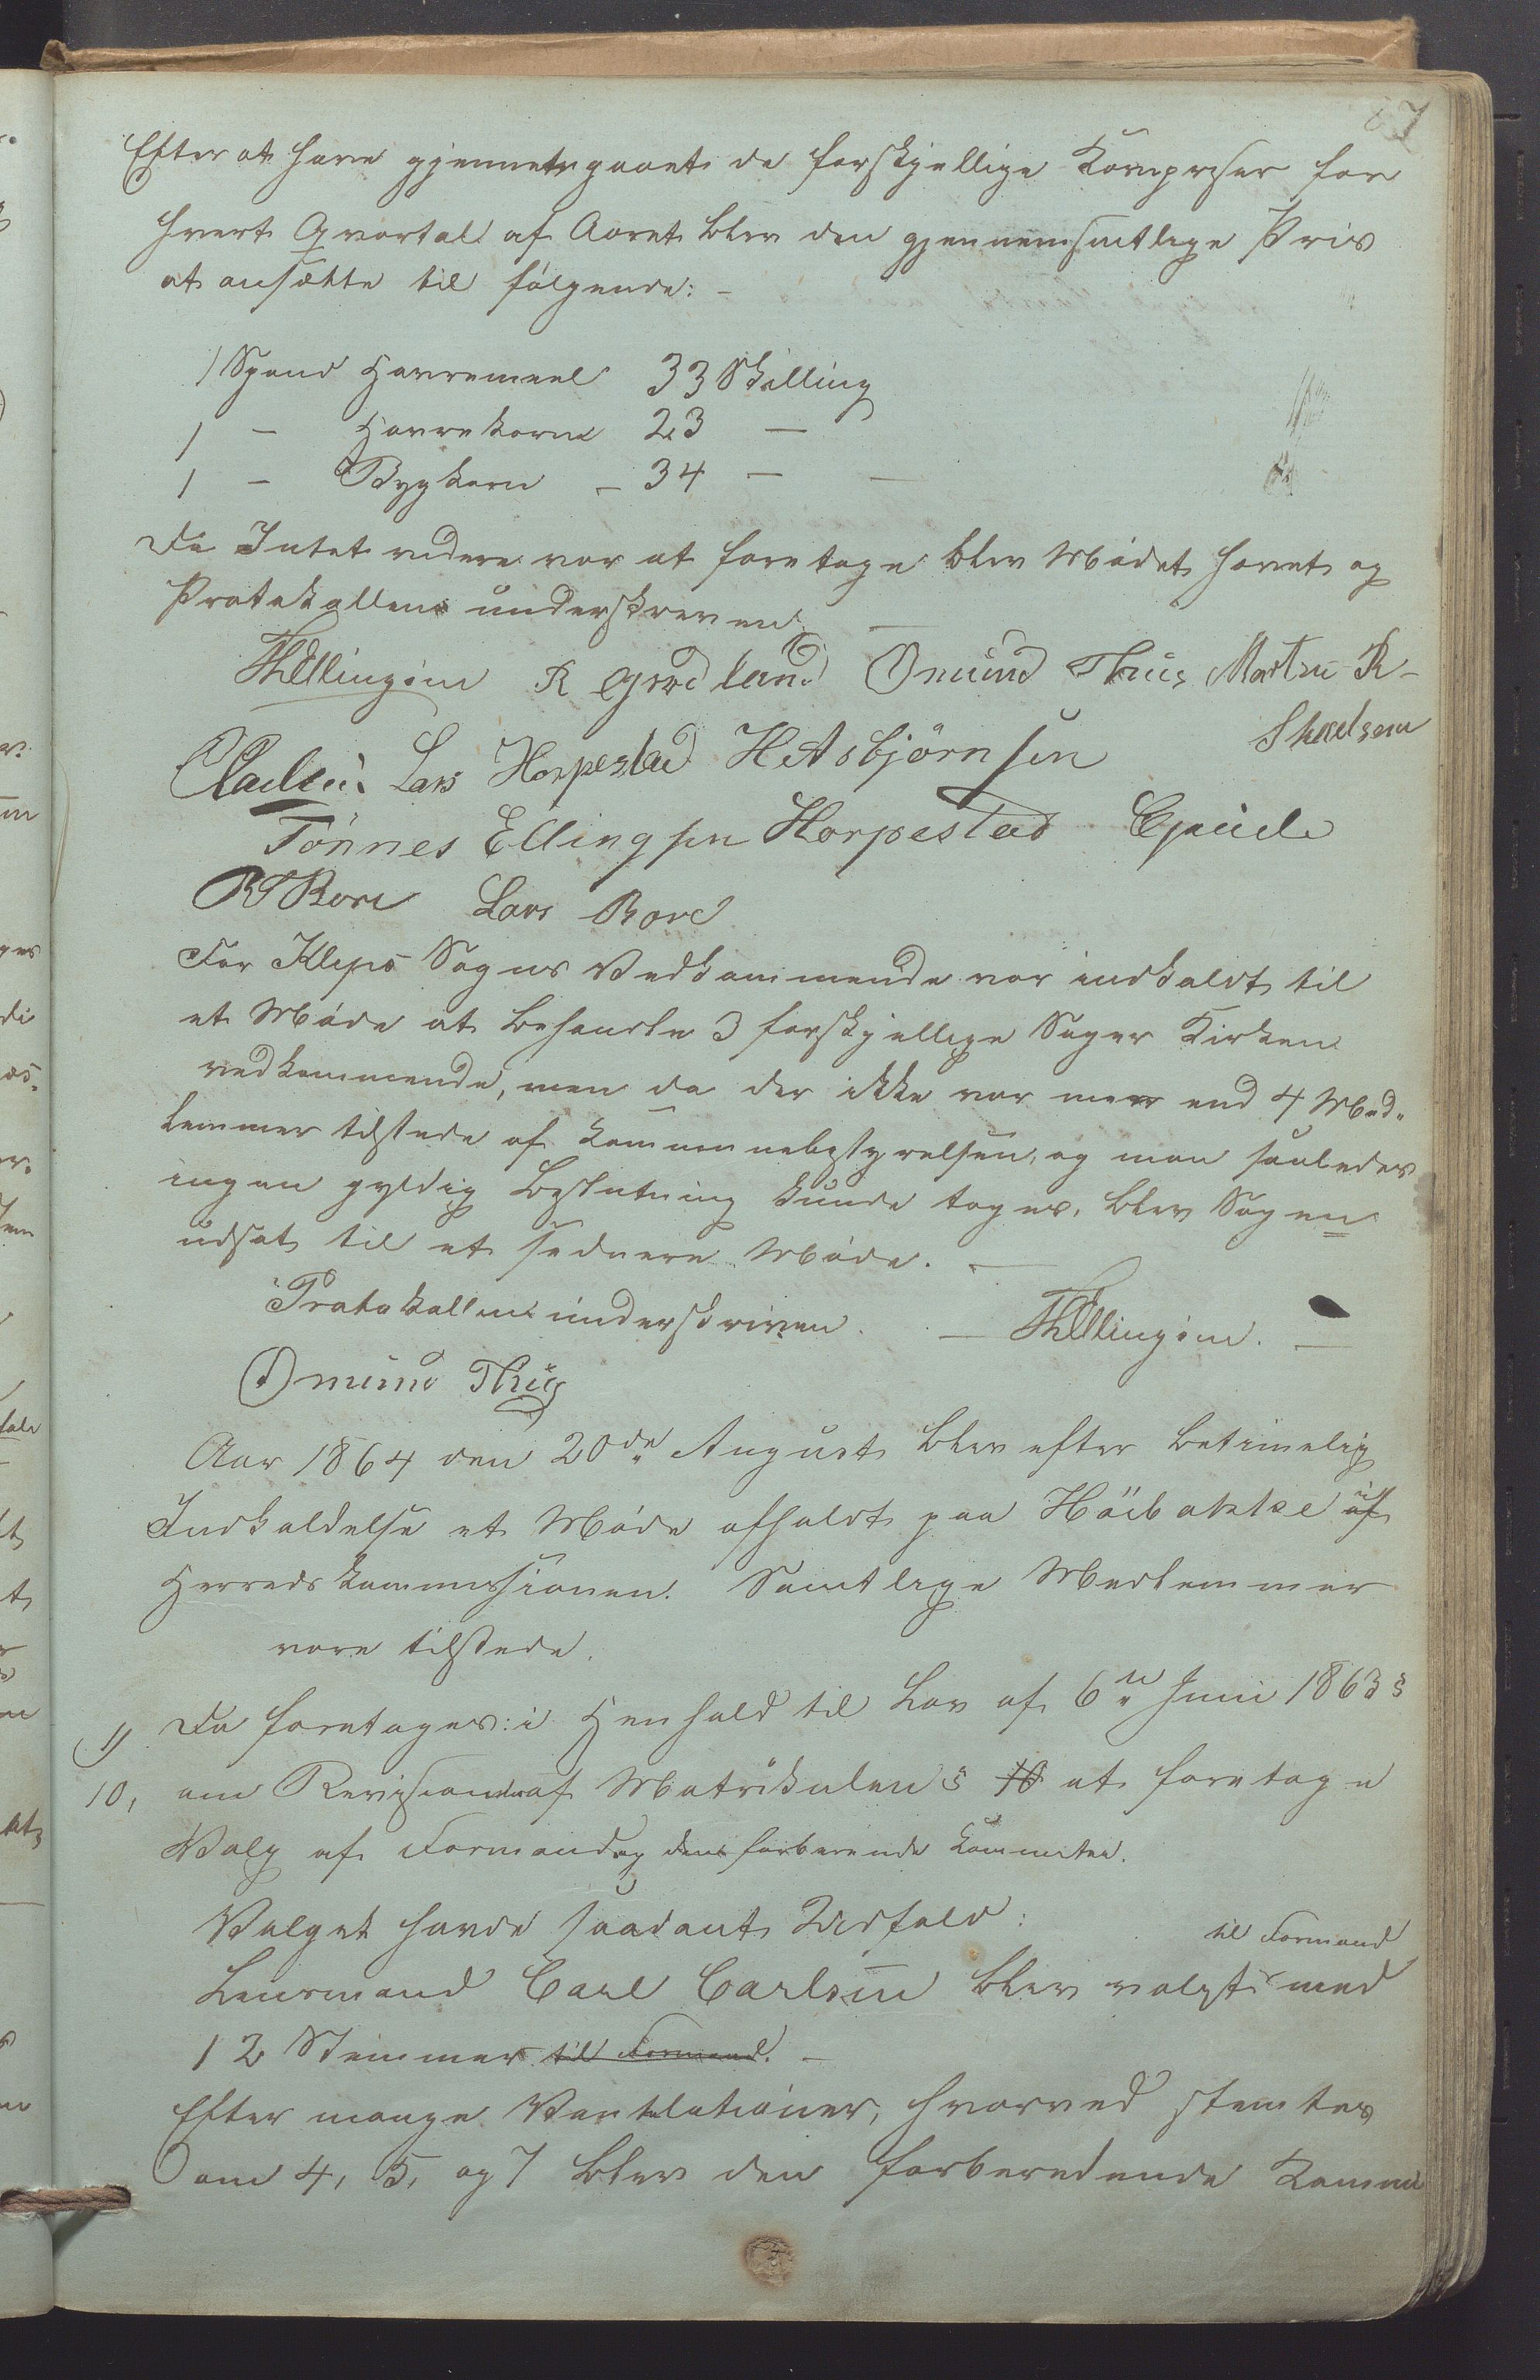 67
Efter at have gjennemgaaet de forskjellige Kornpriser for
hvert Qvartal af Aaret blev den gjennemsnitlige Pris
at ansætte til følgende: -
1 Spand Havremeel 33 Skilling
1 - Havrekorn 23 -
1 - Bygkorn - 34 -
Da Intet videre var at foretage blev Mødet hævet og
Protokollen underskreven. -
Th Ellingsen R Grødeland Omund Thue Martin R-
Skadsem
Lars Horpestad H Asbjörnsen
Tönnes Ellingsen Horpestad
R Bore Lars Bore
For Kleps Sogns Vedkommende var indkaldt til
et Møde at behandle 3 forskjellige Sager Kirken
vedkommende, men da der ikke var meer end 4 Med-
lemmer tilstede af Kommunebestyrelsen, og man saaledes
ingen gyldig Beslutning kunde tages, blev Sagen
udsat til et sednere Møde. -
Protokollen underskriven. - Th Ellingsen. -
Omund Thue
Aar 1864 den 20de August blev efter betimelig
Indkaldelse et Møde afholdt paa Höibakke af
Herredskommissionen. Samtlige Medlemmer
vare tilstede.
1) Da foretages: i Henhold til Lov af 6te Juni 1863 §
10, om Revision af Matrikulen § 10 at foretage
Valg af Formand og den forberende Kommitee.
Valget havde saadant Udfald:
til Formand
Lensmand Carl Carlsen blev valgt med
12 Stemmer til Formand. -
Efter mange Ventilationer, hvorved stemtes
om 4, 5, og 7 blev den forberedende Kommi